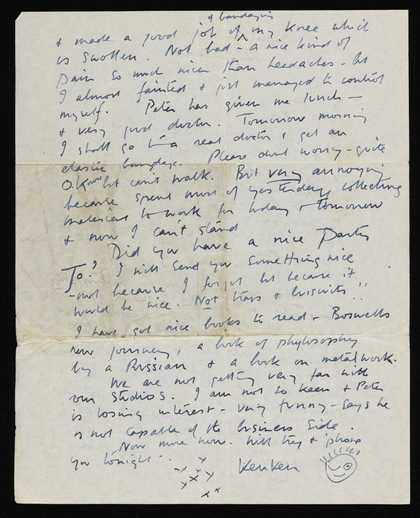 of bandaging
& made a good job ^ my knee which
is swollen. Not bad – a nice kind of
pain so much nicer than headaches – But
I almost fainted & just managed to control
myself. Peter has given me lunch –
& very good doctor. Tomorrow morning
I shall go to a real doctor & get an
elastic bandage. Please dont worry – quite
O.K. but cant walk. But very annoying
because spent most of yesterday collecting
materials to work for today & tomorrow
& now I cant stand
Did you have a nice Party
Jo? I will send you something nice
– not because I forgot but because it
would be nice. Not bras & biscuits!!
I have got nice books to read – Boswells
new journey, a book of phylosophy
by a Russian & a book on metalwork.
We are not getting very far with
our Studios. I am not so keen & Peter
is losing interest – very funny – says he
is not capable of the business side.
Now more now. Will try & phone
you tonight..
x x x x x x
KenKen